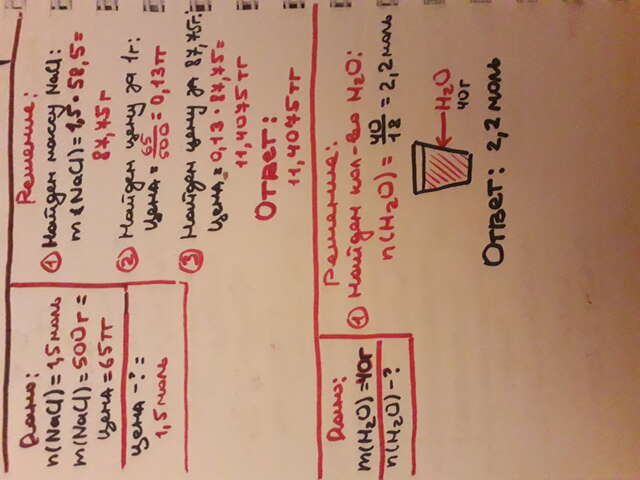 Дано:
n(NaCl)=1,5 моль
m(NaCl)=500г=
цена=65тг
цена-?=
1,5 моль
Решение:
① Найдем массу NaCl:
m(NaCl)=1,5·58,5=
87,75г
② Найдем цену за 1г:
цена=65/500=0,13тг
③ Найдем цену за 87,75г:
цена=0,13·87,75=
11,4075тг
Ответ:
11,4075тг
Дано:
m(H₂O)=40г
n(H₂O)-?
Решение:
① Найдем кол-во H₂O:
n(H₂O)=40/18=2,2 моль
H₂O
40г
Ответ: 2,2 моль